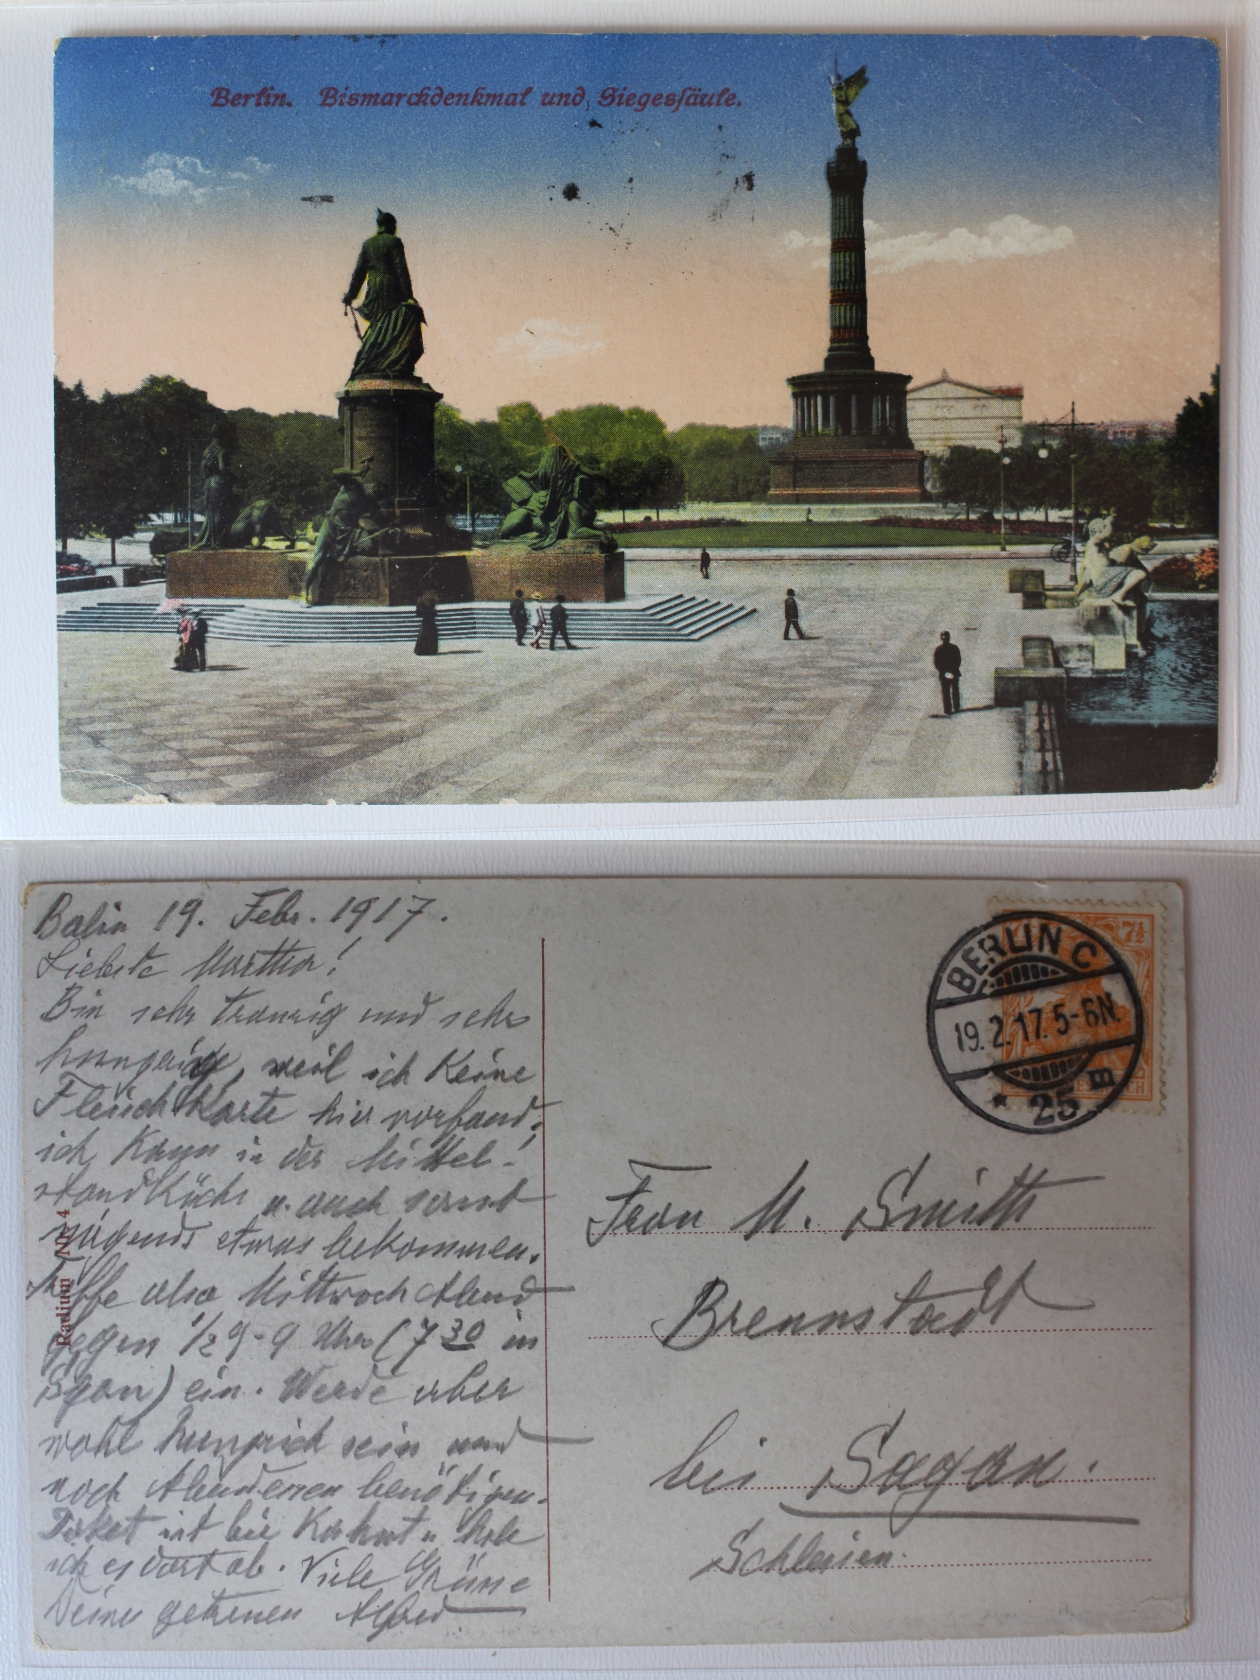 Berlin. Bismarckdenkmal und Siegessäule.
Berlin 19. Febr. 1917.
Liebste Martha!
Bin sehr traurig und sehr
hungrig, weil ich keine
Fleischkarte hier vorfand,
ich kann in der Mittel-
standküche u. auch sonst
nirgends etwas bekommen.
Treffe also Mittwoch Abend
gegen 1/2 9-9 Uhr (7 30 in
Sgan) ein. Werde aber
wohl hungrich sein und
noch Abendessen benötigen.
Paket ist bei u. hole
ich es dort ab. Viele Grüsse
Deine getreuen Alfred
Radium Nr. 4
BERLIN C
19.2.17.5-6N.
* 25 m
7½
Frau M. Smith
Brennstadt
bei Sagan.
Schlesien.